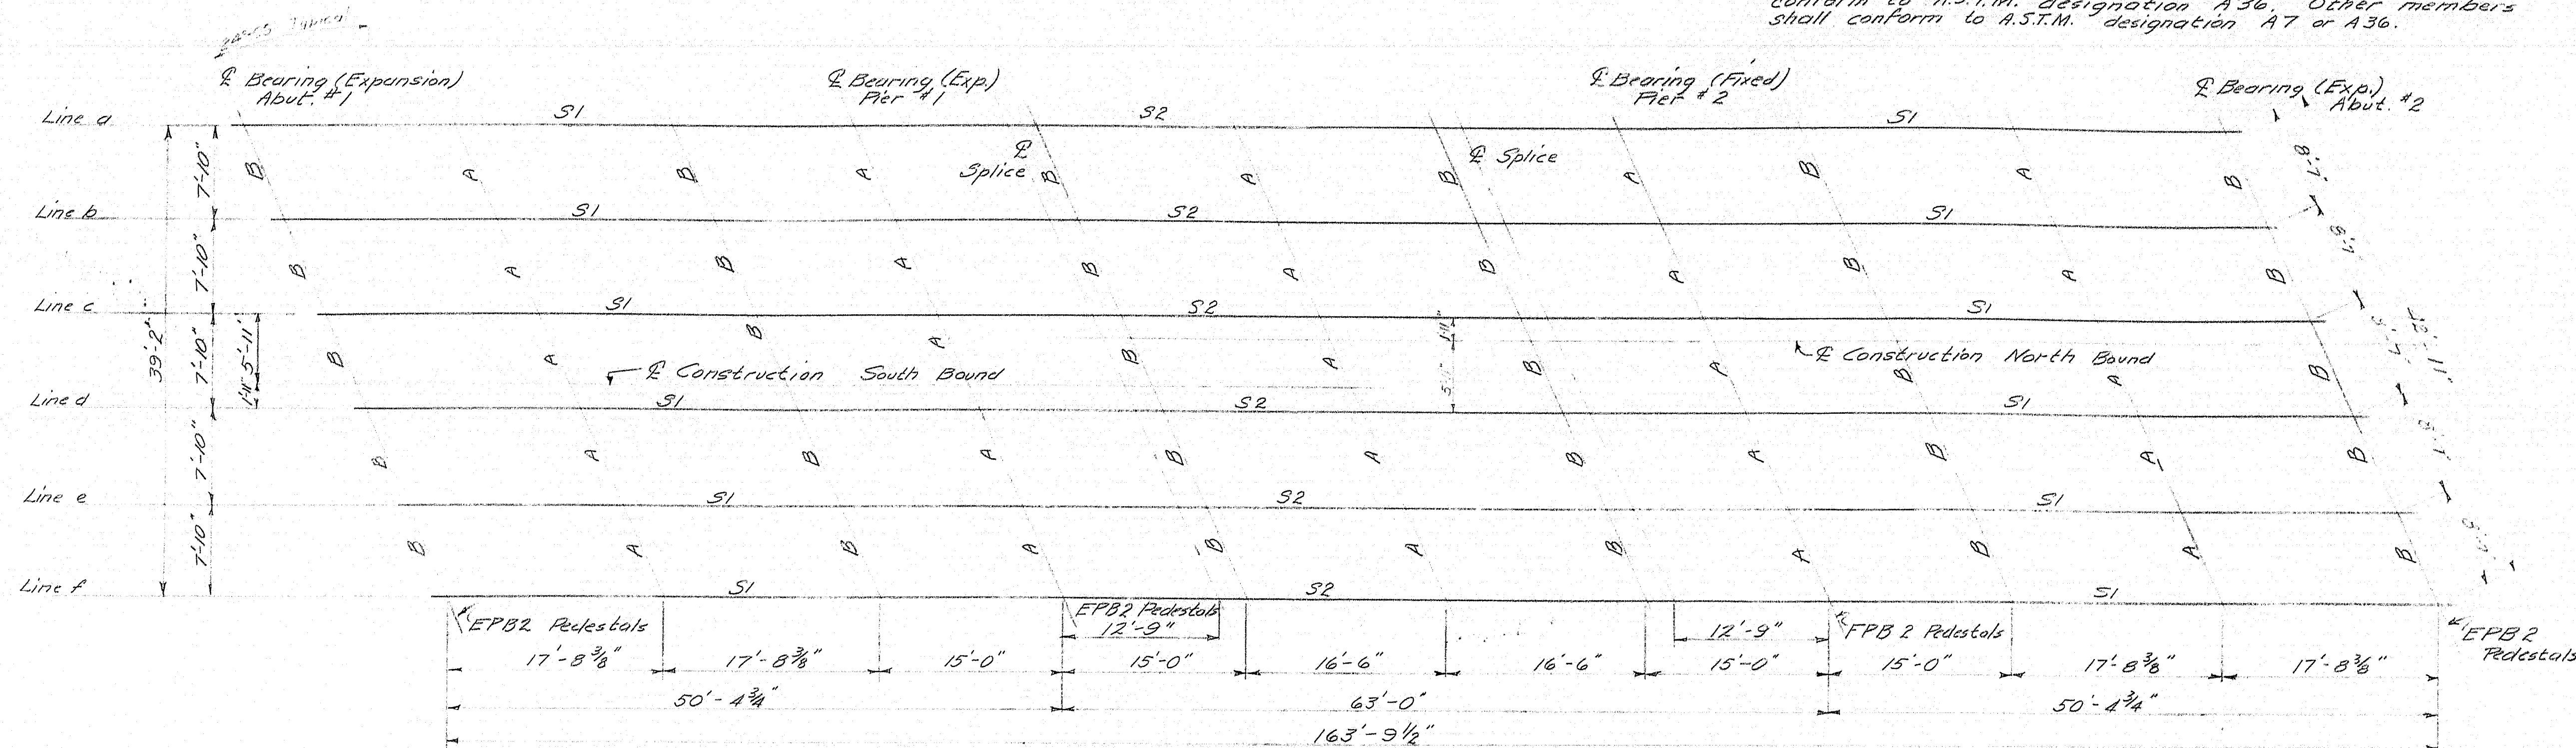 conform to A.S.T.M. designation A36. Other members
shall conform to A.S.T.M. designation A7 or A36.
Typical
℄ Bearing (Expansion)
Abut. #1
℄ Bearing (Exp.)
Pier #1
℄ Bearing (Fixed)
Pier #2
℄ Bearing (Exp.)
Abut. #2
Line a
S1
S2
S1
7'-10"
B
A
B
A
℄
Splice
B
A
B
℄ Splice
A
B
A
B
Line b
S1
S2
S1
7'-10"
B
A
B
A
B
A
B
A
B
A
B
Line c
S1
S2
S1
39'-2"
7'-10"
1'-11"
5'-11"
B
A
B
A
B
A
1'-11"
B
A
B
A
B
℄ Construction South Bound
℄ Construction North Bound
Line d
S1
S2
S1
7'-10"
B
A
B
A
B
A
B
A
B
A
B
Line e
S1
S2
S1
7'-10"
B
A
B
A
B
A
B
A
B
A
B
Line f
S1
S2
S1
EPB2 Pedestals
EPB2 Pedestals
12'-9"
12'-9"
FPB 2 Pedestals
EPB 2
Pedestals
17'-8 3/8"
17'-8 3/8"
15'-0"
15'-0"
16'-6"
16'-6"
15'-0"
15'-0"
17'-8 3/8"
17'-8 3/8"
50'-4 3/4"
63'-0"
50'-4 3/4"
163'-9 1/2"